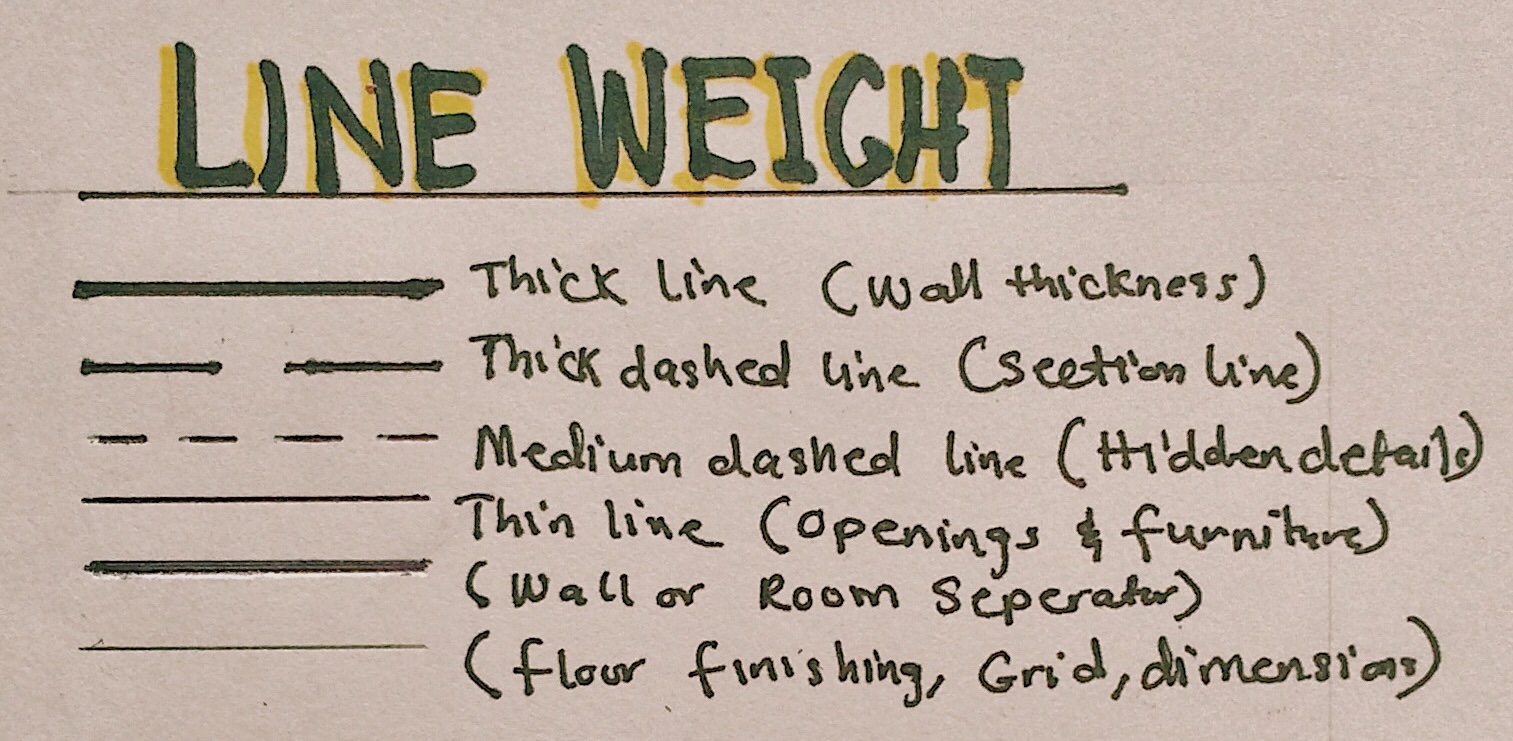 LINE WEIGHT
Thick line (wall thickness)
Thick dashed line (Section line)
Medium dashed line (Hidden details)
Thin line (openings & furniture)
(wall or Room Seperator)
(floor finishing, Grid, dimensions)